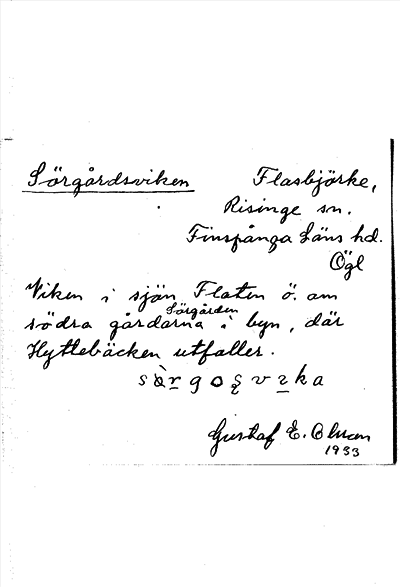 Sörgårdsviken
Flasbjörke,
Risinge sn.
Finspånga Läns hd.
Ögl
Viken i sjön Flaten ö. om
Sörgården
södra gårdarna i byn, där
Hyttebäcken utfaller.
Gustaf E. Olsson
1933